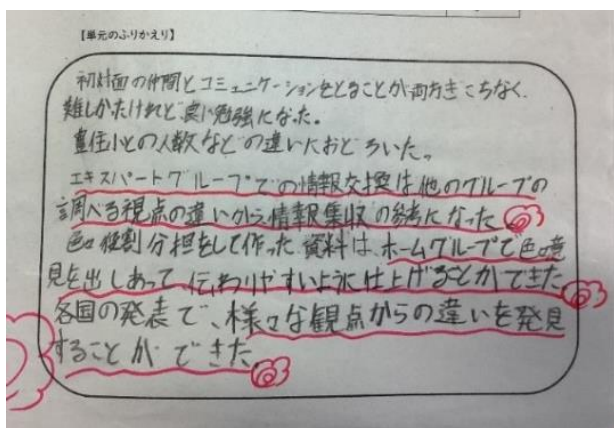 【単元のふりかえり】
初対面の仲間とコミュニケーションをとることが両方ぎこちなく、
難しかたけれど良い勉強になった。
重住小との人数などの違いにおどろいた。
エキスパートグループでの情報交換は他のグループの
調べる視点の違いから情報集収の参考になった
色々役割分担をして作った資料は、ホームグループで色々意
見を出しあって伝わりやすいように仕上げることができた
各国の発表で、様々な観点からの違いを発見
することができた